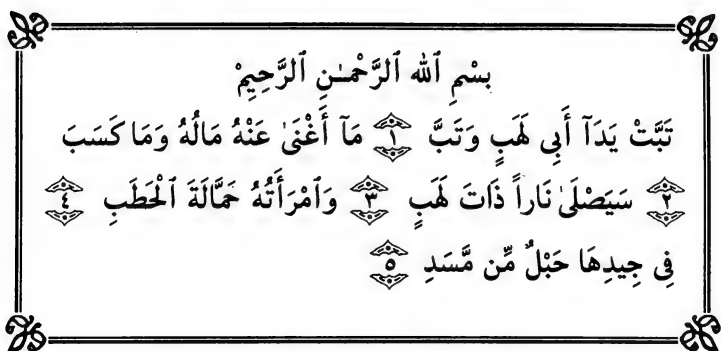 بِسْمِ ٱللهِ ٱلرَّحْمَـٰنِ ٱلرَّحِيمِْ
تَبَّتْ يَدَآ أَبِى لَهَبٍ وَتَبَّ ١ مَآ أَغْنَىٰ عَنْهُ مَالُهُ وَمَا كَسَبَ
٢ سَيَصْلَىٰ نَاراً ذَاتَ لَهَبٍ ٣ وَٱمْرَأَتُهُ حَمَّالَةَ ٱلْحَطَبِ ٤
فِى جِيدِهَا حَبْلٌ مِّن مَّسَدِ ٥